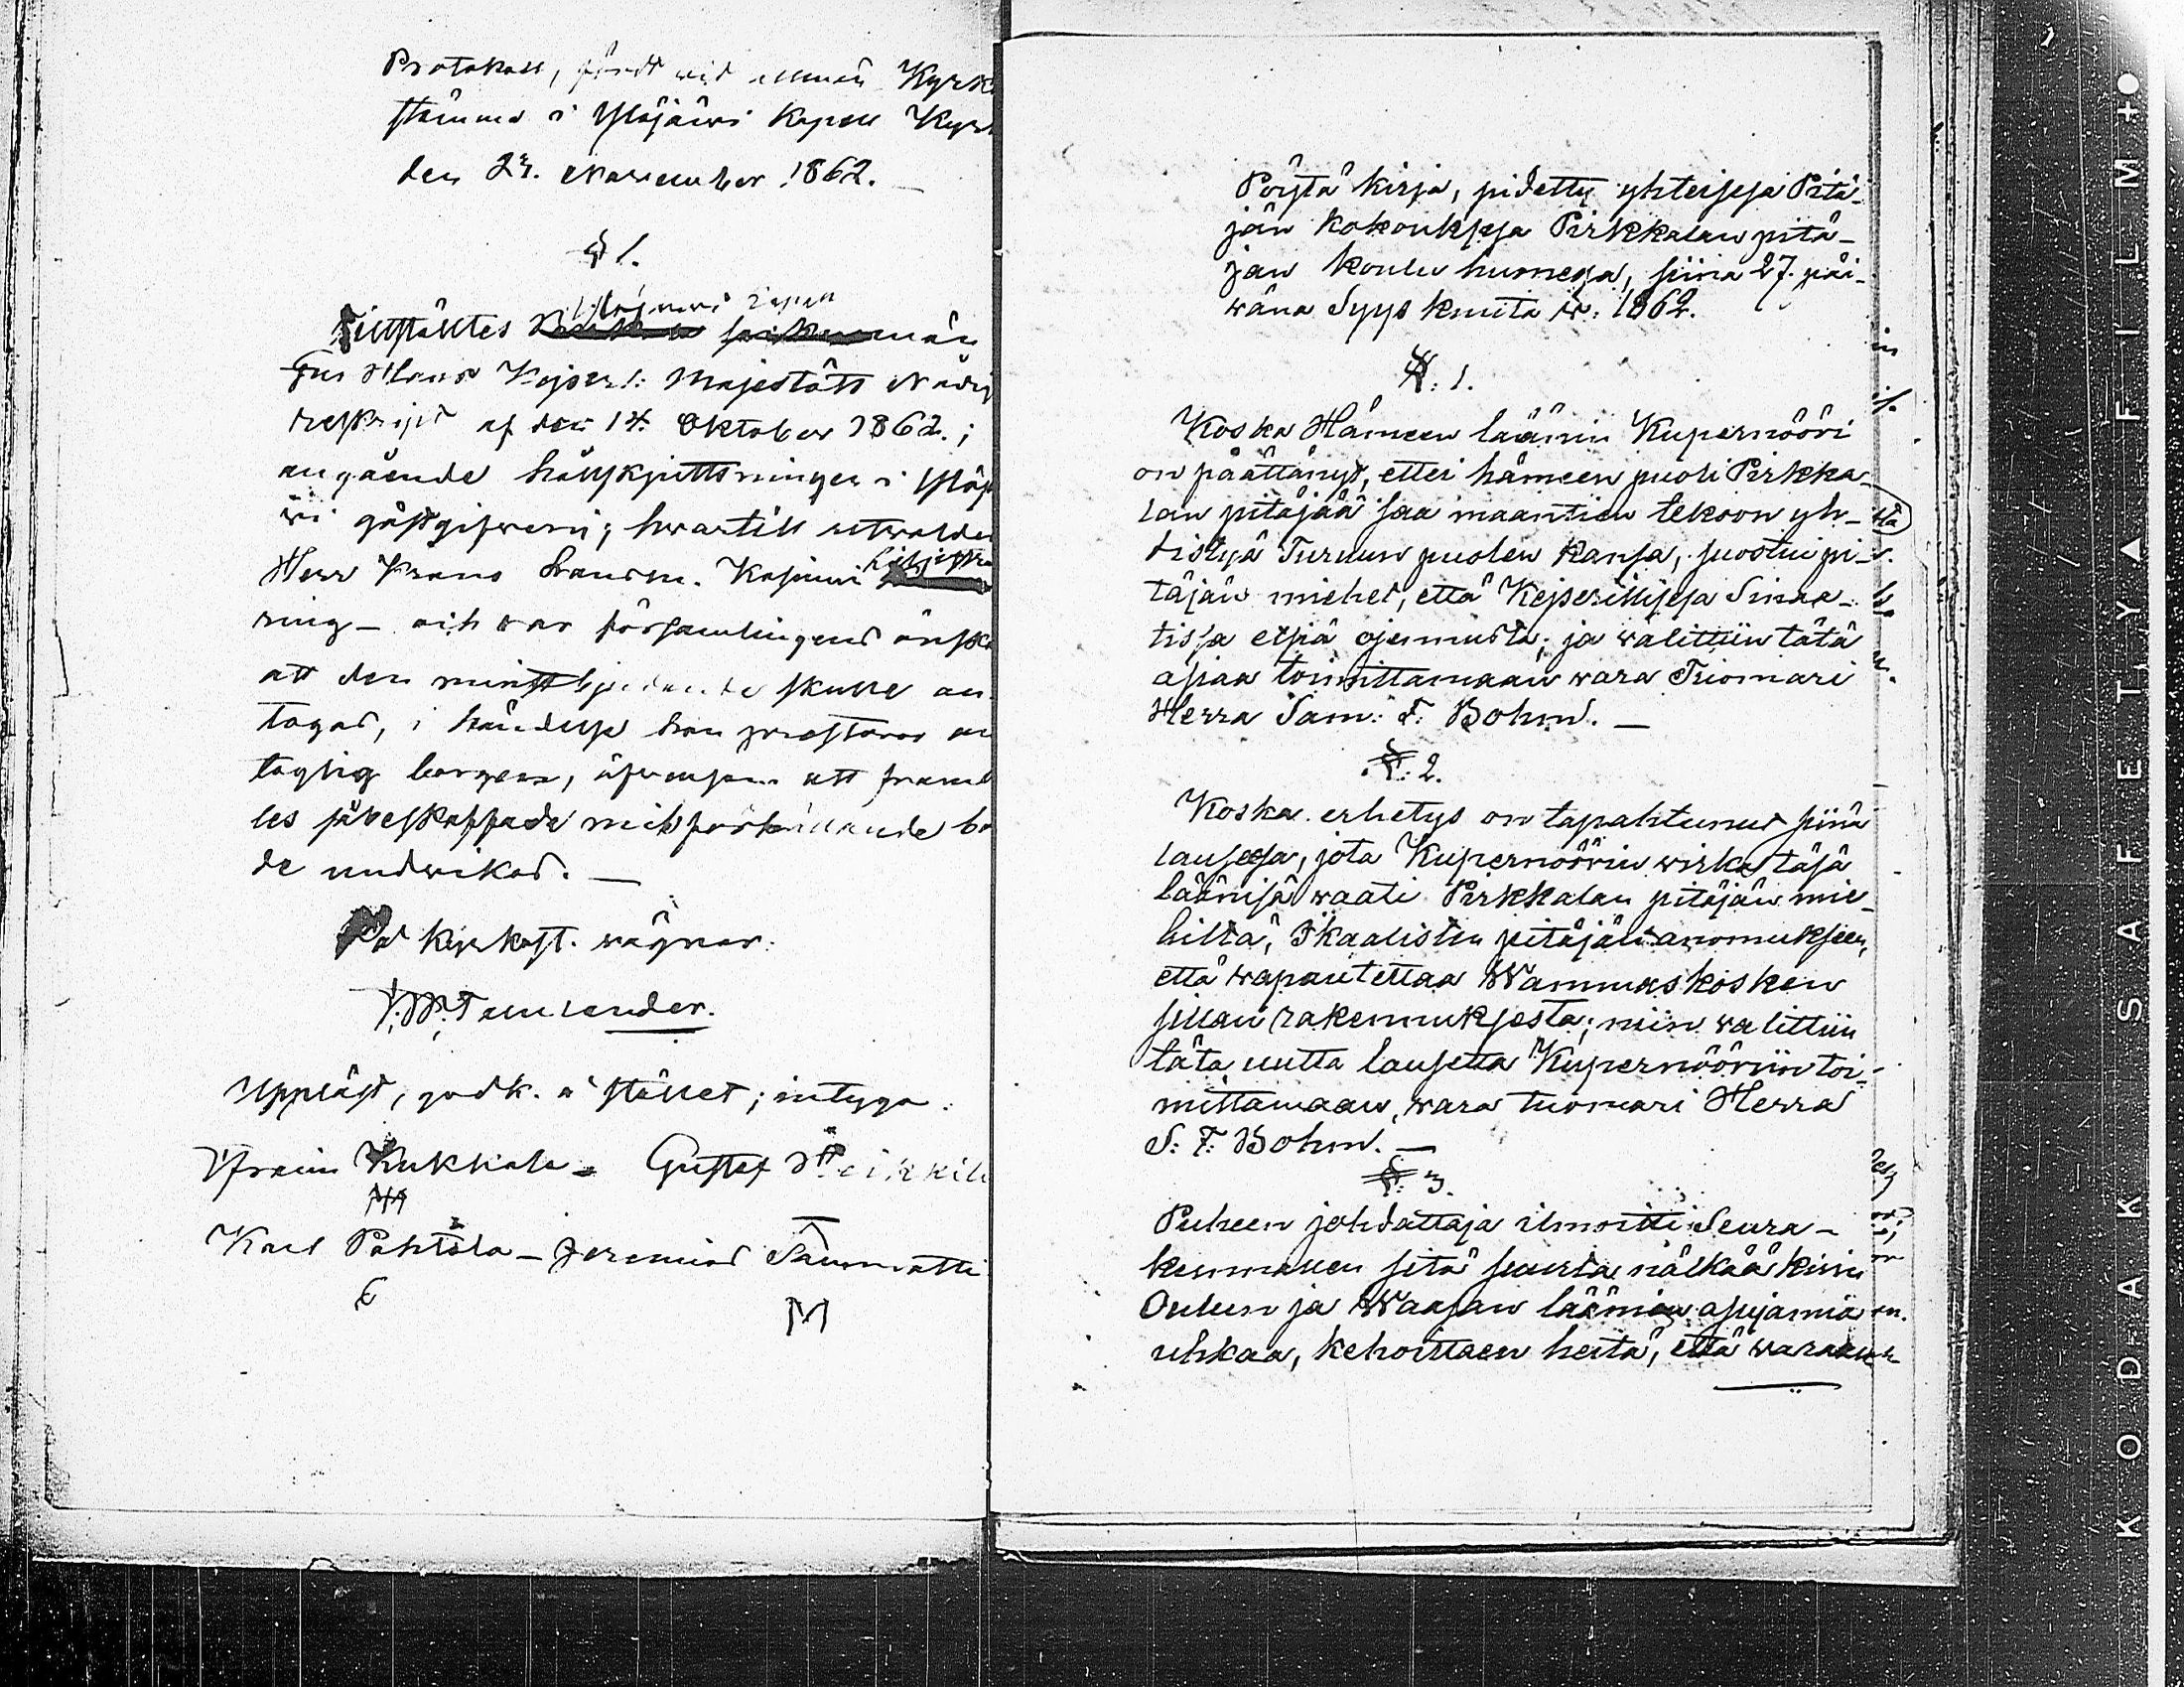 Protokoll, fördt wid allmän Kyrk
stämma i Ylöjärvi Kapell Kyr
den 23. November 1862.
§ 1.
Ylöjärwi
Tillstäldes män
Hans Kejserl: Majestäts Nådig
reskript af den 14 Oktober 1862.;
angående hållskjuttsningen i Ylöj
wi gästgifweri; hwartill utwaldes
Herr Frans
ring – och war församlingens önska
att den minstbjudande skulle an
tagas, i händelse han prestorar an
taglig borgen, äfwensom att framd
les
de undwikas. —
På Kyrkost. wägnar:
Uppläst, godk. o stället; intyga:
Efraim Kukkola – Gustaf Heikkilä
Karl Pohtola – Jeremias Sammatti
M
Pöytä kirja, pidetty yhteisesä Pitä-
jän kokouksesa Pirkkalan pitä-
jan koulu humesa, siina 27. päi-
wäna Syys kuuta w: 1862.
§: 1.
Koska Hämeen läänin Kupernööri
on päättänyt, ettei hämeen puoli Pirkka-
lan pitäjää saa maantien tekoon yh-
distyä Turuun puolen kansa, suostui pi-
täjän miehet, että Kejserillisesä Sinaa-
tissa etsiä ojennusta; ja walittiin tätä
asiaa toimittamaan wara Tuomari
Herra Sam: F: Bohm. —
§: 2.
Koska erhetys on tapahtunut siinä
lausesa, jota Kupernöörin wirka täsä
läänisä waati Pirkkalan pitäjän mie-
hiltä, Ikaalisten pitäjän anomukseen,
että wapautettaa Wammaskosken
sillan rakennuksesta; niin walittiin
täta uutta lausetta Kupernööriin toi-
mittamaan, wara tuomari Herra
S: F: Bohm. —
§: 3.
Puheen johdattaja ilmoitti Seura-
kunnallen sitä suurta nälkää kuin
Oulun ja Waasan läänin asujamia
uhkaa, kehoittaen heitä, että
KODAK SAFETY FILM